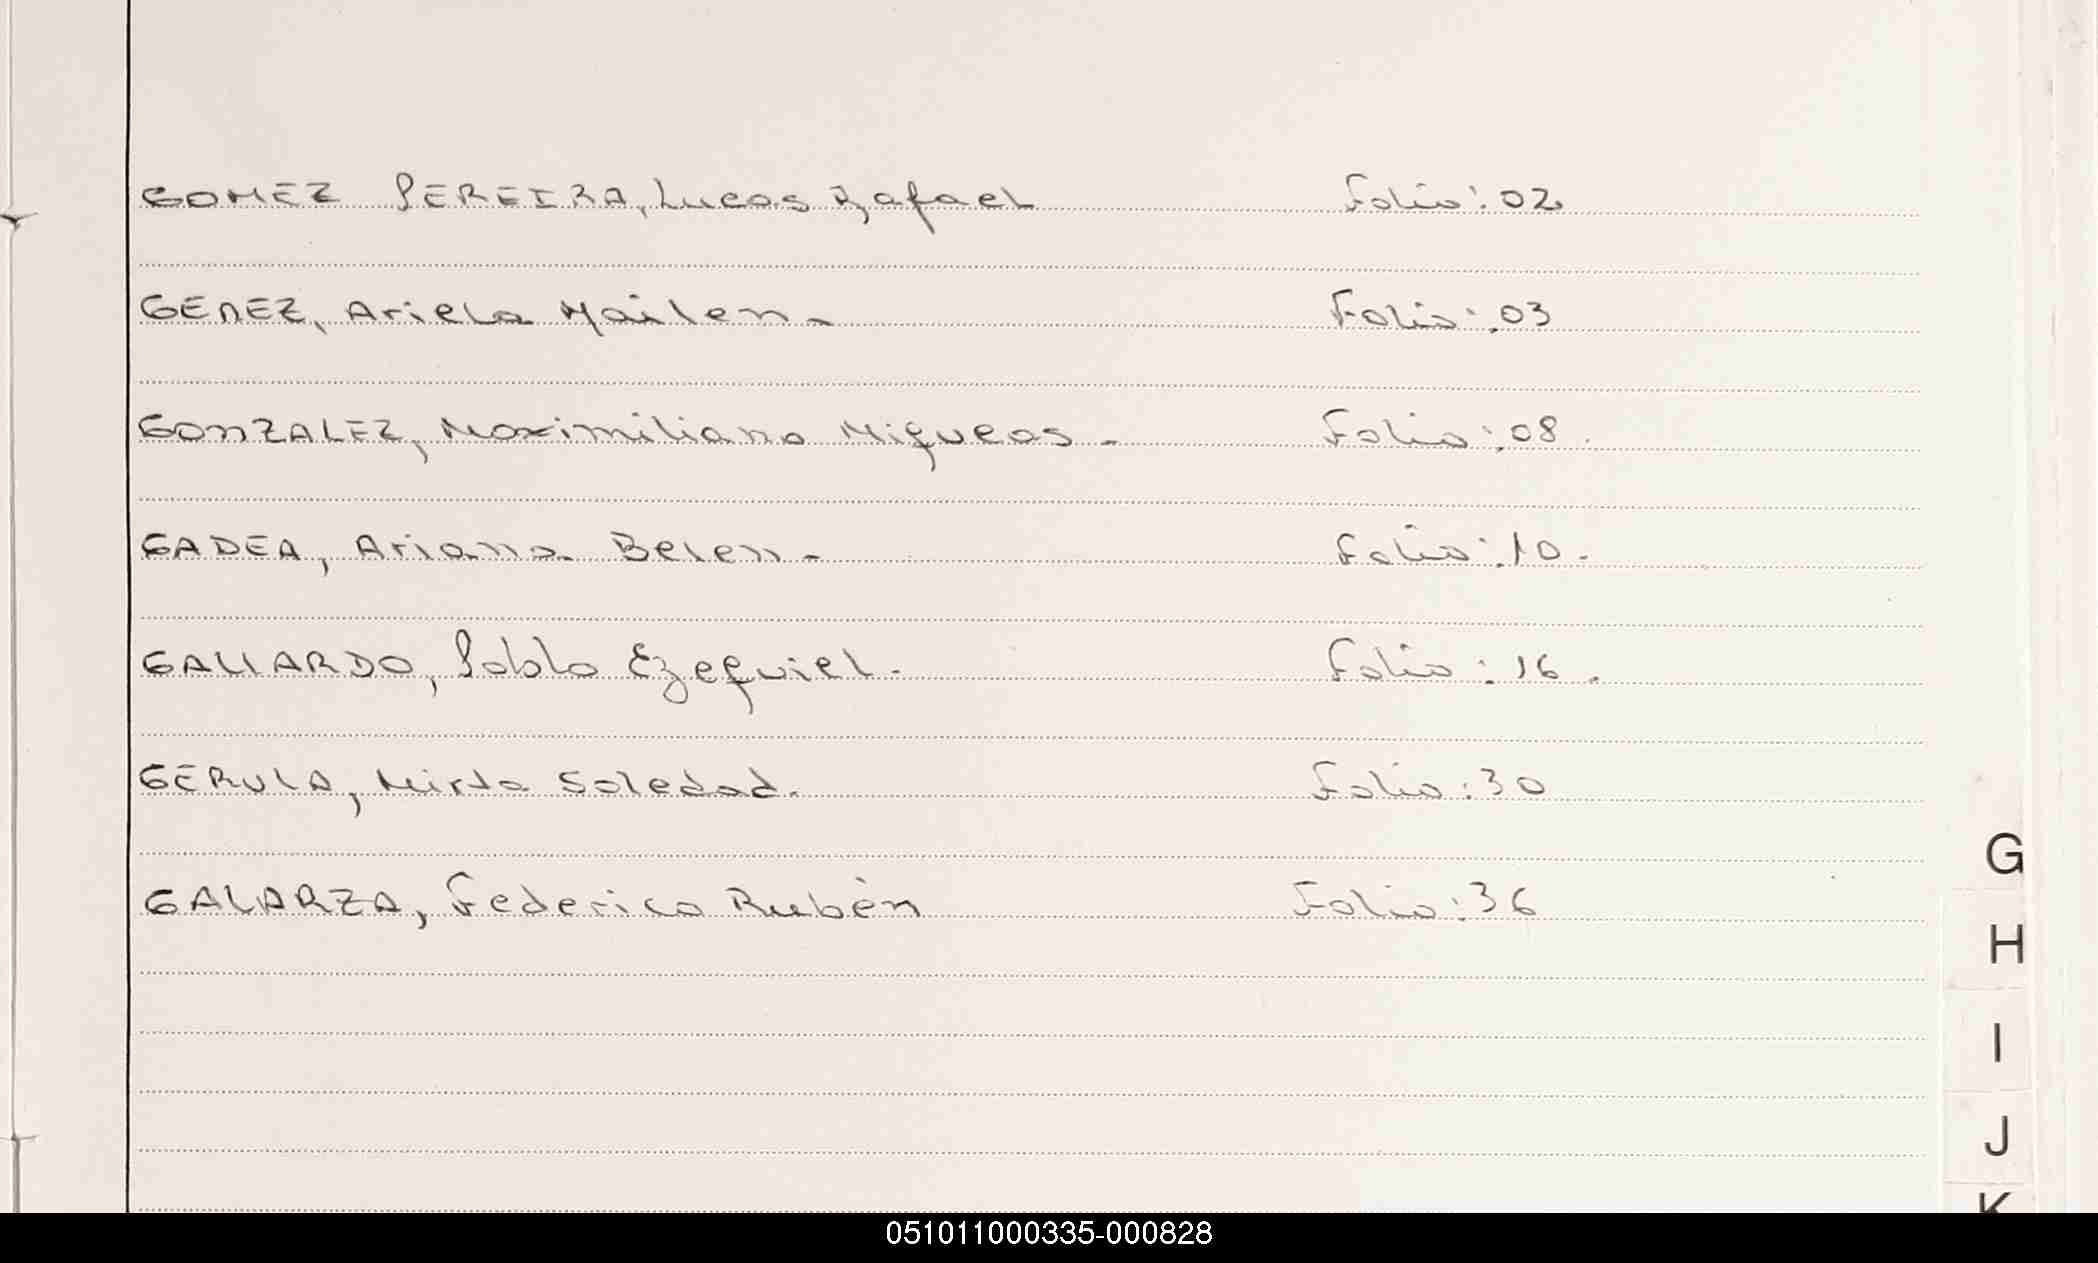 GOMEZ PEREIRA, Lucas Rafael Folio: 02
GENEZ, Ariela Mailen.- Folio: 03
GONZALEZ, Maximiliano Miqueas.- Folio: 08.
GADEA, Ariana Belen.- Folio: 10.
GALLARDO, Pablo Ezequiel.- Folio: 16.
GERULA, Mirta Soledad. Folio: 30
GALARZA, Federico Rubén Folio: 36
G
H
I
J
K
051011000335-000828